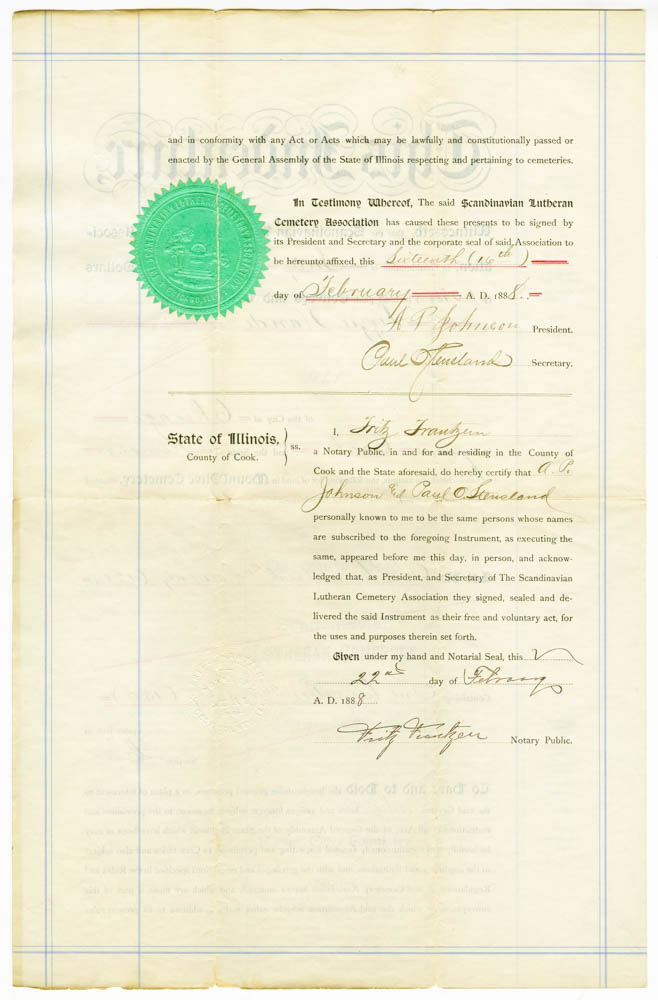 and in conformity with any Act or Acts which may be lawfully and constitutionally passed or
enacted by the General Assembly of the State of Illinois respecting and pertaining to cemeteries.
In Testimony Whereof, The said Scandinavian Lutheran
Cemetery Association has caused these presents to be signed by
its President and Secretary and the corporate seal of said Association to
be hereunto affixed, this Sixteenth (16th)
day of February A. D. 1888.
A P Johnson President.
Paul O Stensland Secretary.
State of Illinois,
County of Cook.
ss.
I, Fritz Frantzen
a Notary Public, in and for and residing in the County of
Cook and the State aforesaid, do hereby certify that A. P.
Johnson & Paul O. Stensland
personally known to me to be the same persons whose names
are subscribed to the foregoing Instrument, as executing the
same, appeared before me this day, in person, and acknow-
ledged that, as President, and Secretary of The Scandinavian
Lutheran Cemetery Association they signed, sealed and de-
livered the said Instrument as their free and voluntary act, for
the uses and purposes therein set forth.
Given under my hand and Notarial Seal, this
22nd day of February
A. D. 1888
Fritz Frantzen Notary Public.